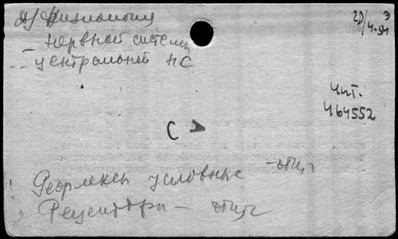 Физиология
нервной системы
центральной НС
20/4-54
Э
Чит.
464552
С
Рефлексы условные - общ
Рецепторы - общ